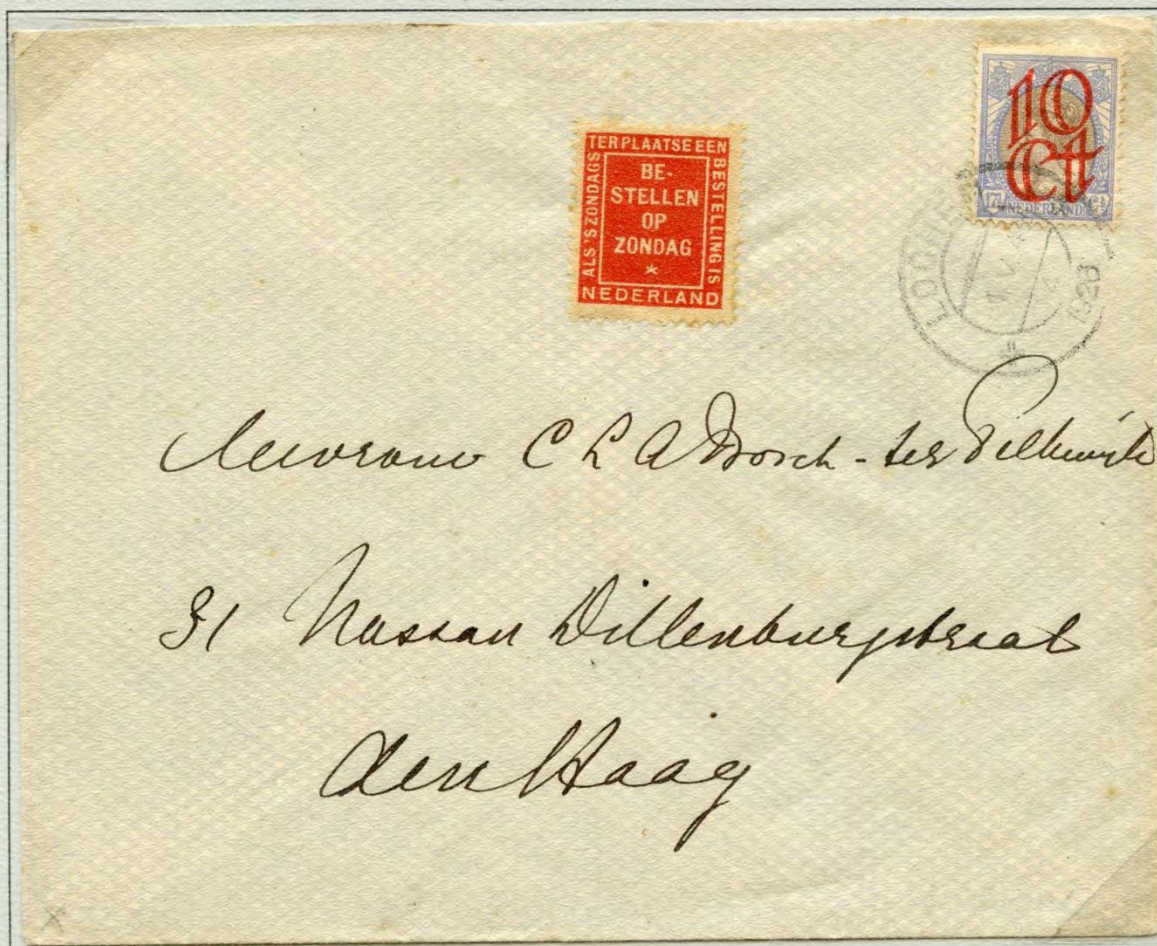 10
Ct
17½ NEDERLAND Ct
ALS 'S ZONDAGS
TER PLAATSE EEN
BESTELLING IS
BE-
STELLEN
OP
ZONDAG
*
NEDERLAND
1923
Mevrouw C L A Bosch - ter
31 Nassau Dillenburgstraat
den Haag